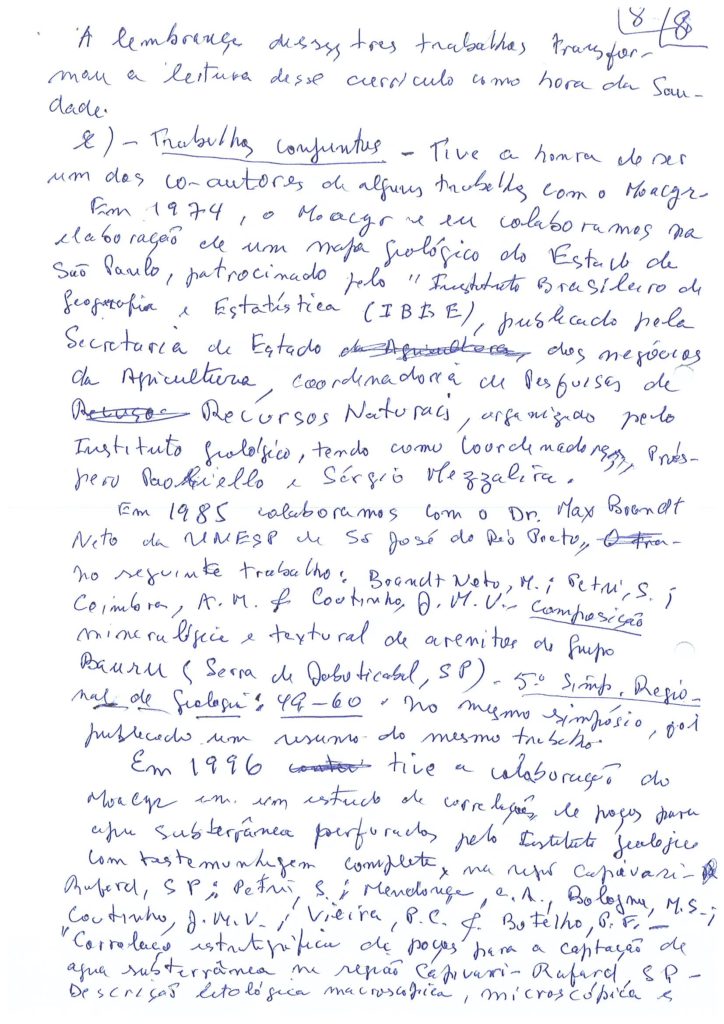 8/8
A lembrança desses tres trabalhos transfor-
mou a leitura desse curriculo como hora da Sau-
dade.
e) - Trabalhos conjuntos - Tive a honra de ser
um dos co-autores de alguns trabalhos com o Moacyr.
Em 1974, o Moacyr e eu colaboramos na
elaboração de um mapa geológico do Estado de
São Paulo, patrocinado pelo "Instituto Brasileiro de
Geografia e Estatística (IBGE), publicado pela
Secretaria de Estado da Agricultura, dos negócios
da Agricultura, Coordenadoria de Pesquisas de
Recursos Naturais, organizado pelo
Instituto Geológico, tendo como Coordenadores, Prós-
pero Paoliello e Sérgio Mezzalira.
Em 1985 colaboramos com o Dr. Max Brandt
Neto da UNESP de S. José do Rio Preto,
no seguinte trabalho: Brandt Neto, M.; Petri, S.;
Coimbra, A. M. & Coutinho, J. M. V. - Composição
mineralógica e textural de arenitos do Grupo
Bauru (Serra de Jaboticabal, SP) - 5º Simp. Regio-
nal de Geologia: 49-60. No mesmo simpósio, foi
publicado um resumo do mesmo trabalho.
Em 1996 tive a colaboração do
Moacyr em um estudo de correlações de poços para
agua subterrânea perfurados pelo Instituto Geológico
com testemunhagem completa, na região Capivari-
Rafard, SP; Petri, S.; Mendonça, C. A., Bologna, M.S.;
Coutinho, J.M.V.; Vieira, P.C. & Botelho, P.F. -
"Correlação estratigráfica de poços para a captação de
agua subterrânea na região Capivari-Rafard, SP -
Descrição litológica macroscópica, microscópica e